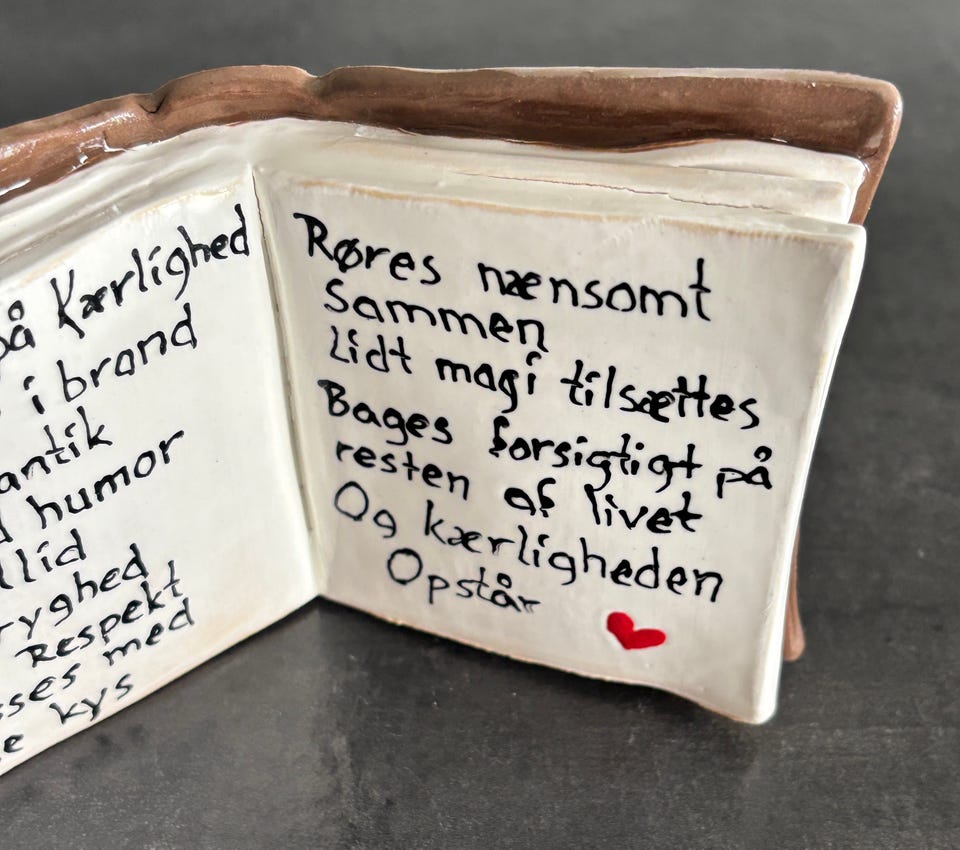 på Kærlighed
i brand
antik
humor
llid
ryghed
Respekt
sses med
e kys
Røres nænsomt
Sammen
Lidt magi tilsættes
Bages forsigtigt på
resten af livet
Og kærligheden
Opstår